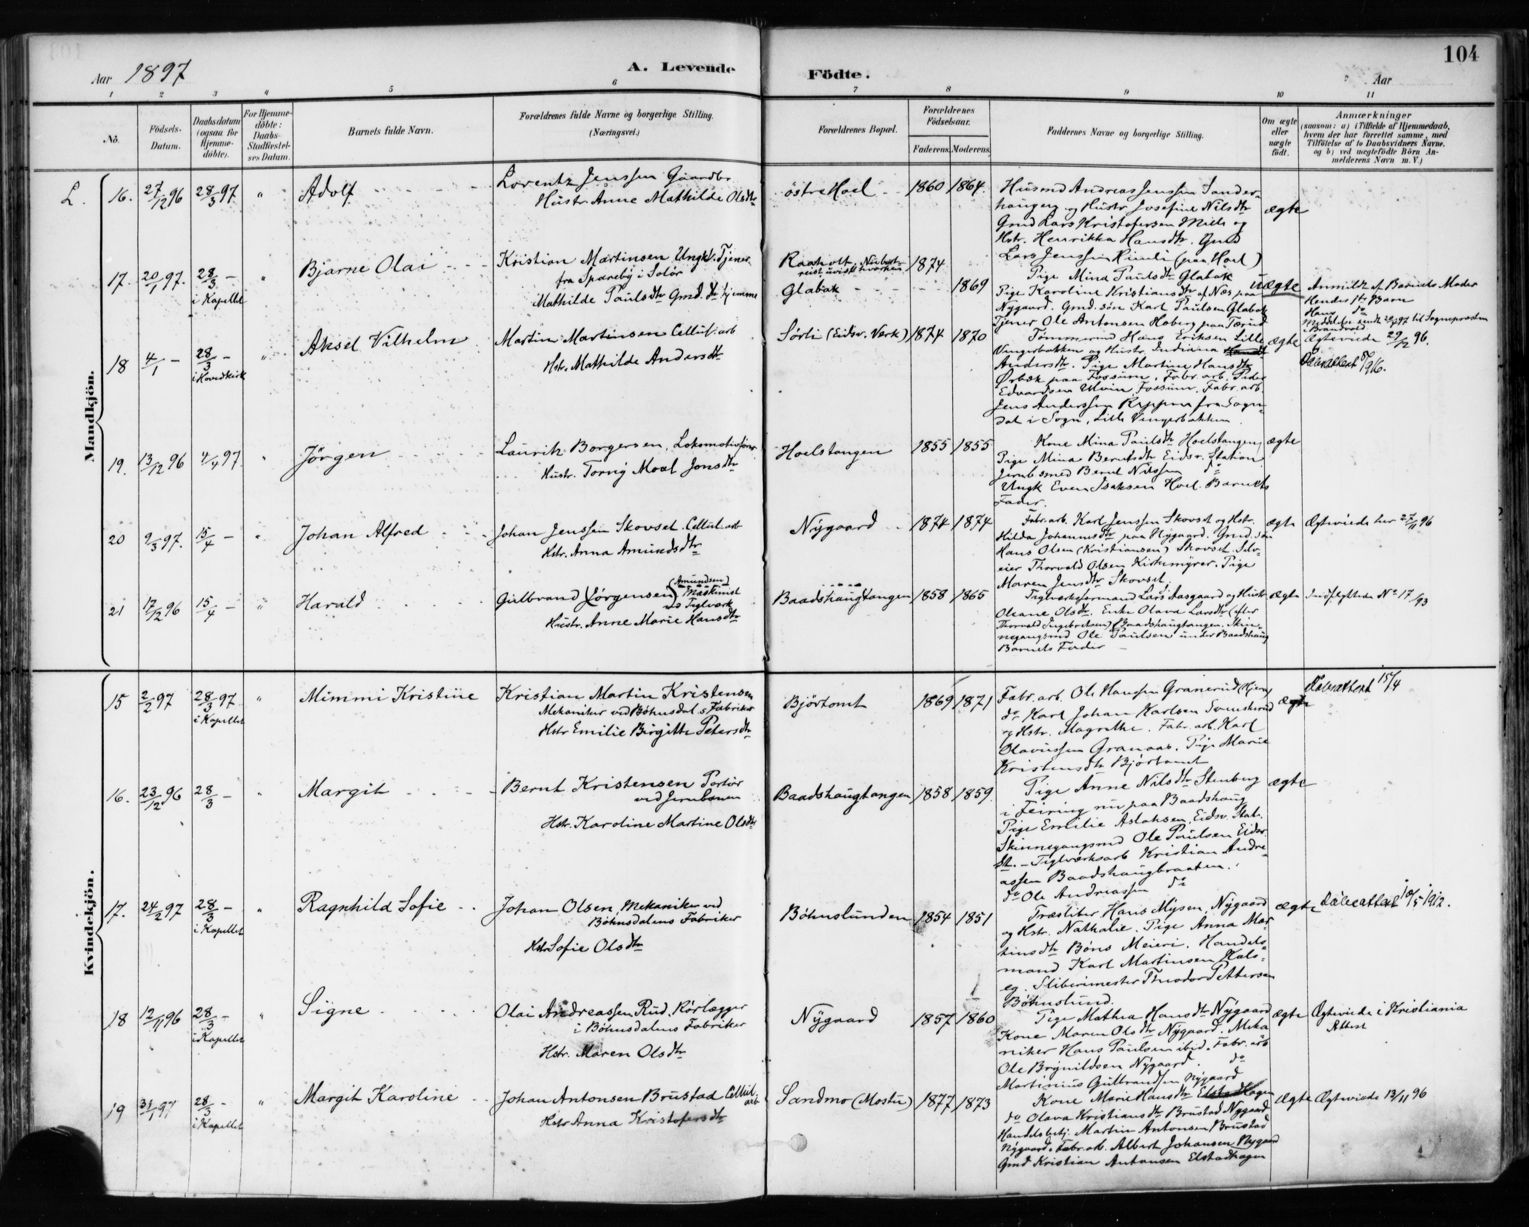 104
Aar 1897
A. Levende Födte.
Aar
1 2 3 4 5 6 7 8 9 10 11
No.
Födsels-Datum.
Daabsdatum (ogsaa for Hjemme-döbte).
For Hjemme-döbte: Daabs-Stadfæstel-ses Datum.
Barnets fulde Navn.
Forældrenes fulde Navne og borgerlige Stilling. (Næringsvei.)
Forældrenes Bopæl.
Forældrenes Födselsaar.
Faderens. Moderens.
Faddernes Navne og borgerlige Stilling.
Om ægte eller uægte født.
Anmærkninger
(saasom: a) i Tilfælde af Hjemmedaab, hvem der har forrettet samme, med Tilföielse af to Daabsvidners Navne, og b) ved uægtefödte Börn Anmelderens Navn m. V.)
Mandkjön.
L. 16. 27/12 96 28/3 97. " Adolf
Lorentz Jenssen Gaardbr.
Hustr. Anne Mathilde Olsdtr
østre Hoel 1860 1864.
Husmd Andreas Jenssen Sander-
haugen og Hustr. Josefine Nilsdtr
Gmd Lars Kristofersen Miels og
Hstr. Henrikka Hansdtr. Gmd
Lars Jenssen (paa Hoel)
ægte
17. 20/1 97. 28/3 – i Kapellet " Bjarne Olai
Kristian Martinsen Ungk. Tjener
fra Spæreby i Solør
Mathilde Paulsdtr Gmd. dtr hjemme
Raaholt
Glabak
1874
1869
Pige Mina Paulsdtr Glabak
Pige Karoline Kristiansdtr af Næs paa
Nygaard. Gmd. søn Karl Paulsen Glabak
Tjener Ole Antonsen Hoberg paa Tærud
uægte
Anmeldt af Barnets Moder
Hendes 1ste Barn
Hans do
18 4/1 – 28/3 i Hovedkirk " Aksel Vilhelm
Martin Martinsen Cellul. arb
Hstr. Mathilde Andersdtr
Sørli (Eidsv. Verk) 1874 1870
Tømmermd Hans Eriksen Lille
Vingerbakken og Hustr. Indiana
Andersdtr. Pige Martine Hansdtr
Ørbæk paa Fossum. Fabr. arb. Peder
Edvardsen Ulvin, Fossum, Fabr. arb.
Jens Anderssen fra Sogn-
dal i Sogn, Lille Vingerbakken.
ægte
Ægteviede 29/12 96.
Daabsattest 1916.
19. 13/12 96 4/4 97. " Jörgen
Laurits Borgersen, Lokomotivförer
Hustr. Torny Moal Jonsdtr
Hoelstangen 1855 1855
Kone Mina Paulsdtr Hoelstangen
Pige Mina Berntsdtr Eidsv. Station
Jernb smed Bernt Nilssen do
Ungk Even Isaksen Hoel Barnets
Fader.
ægte
20 9/3 97. 15/4 – " Johan Alfred
Johan Jenssen Skovset. Cellul. arb
Hstr. Anna Amundsdtr
Nygaard 1874 1874
Fabr. arb. Karl Jenssen Skovset og Hstr.
Hilda Johannesdtr paa Nygaard. Gmd. søn
Hans Olsen (Kristiansen) Skovset. Selv-
eier Thorvald Olsen Kirkemyrer. Pige
Maren Jensdtr Skovset.
ægte
Ægteviede her 27/11 96
21 17/12 96 15/4 – " Harald
Gulbrand Jörgensen (Amundsen) Maskinist
v. Teglverk
Hustr. Anne Marie Hansdtr
Baadshaugtangen 1858 1865
Teglverksformand Lars Aasgaard og Hustr.
Oleane Olsdtr. Enke Olava Larsdtr (efter
Thorvald Ingebretsen) Baadshaugtangen. Skin-
negangsmd Ole Paulsen under Baadshaug
Barnets Fader
ægte
Indflyttede No 17/93
Kvindekjön.
15 2/2 97 28/3 97. i Kapellet " Mimmi Kristine
Kristian Martin Kristensen
Mekaniker ved Bøhnsdal s Fabriker
Hstr Emilie Birgitte Petersdtr
Bjørtomt 1869 1871
Fabr. arb Ole Hanssen Granerud Hjem
do Karl Johan Karlsen Svenskerud
og Hstr. Magrethe. Fabr. arb. Karl
Olaviussen Granaas. Pige Marie
Kristensdtr Bjørtomt
ægte
Daabsattest 15/4
16. 23/12 96 28/3 – " Margit
Bernt Kristensen Portör
ved Jernbanen
Hstr. Karoline Martine Olsdtr
Baadshaugtangen 1858 1859
Pige Anne Nilsdtr Stenberg
i Feiring nu paa Baadshaug
Pige Emilie Aslaksen, Eidsv. Stat.
Skinnegangsmd Ole Paulsen Eidsv.
St. – Teglverksarb Kristian Andre-
assen Baadshaugbraaten.
do Ole Andreassen do
ægte
17. 24/2 97 28/3 – i Kapellet " Ragnhild Sofie
Johan Olsen, Mekaniker ved
Bøhnsdalens Fabriker
Hstr Sofie Olsdtr
Bøhnslunden 1854 1851
Træsliter Hans Mysen, Nygaard
og Hstr. Nathalie. Pige Anna Mar-
tinsdtr Böns Meieri. Handels-
mand Karl Martinsen
Sliberimester Theodor Pettersen
Bøhnslund.
ægte
Daabsattest 10/5 1912.
18 12/11 96 28/3 – i Kapellet " Signe
Olai Andreassen Rud, Rörlægger
i Bøhnsdalens Fabriker
Hstr. Maren Olsdtr
Nygaard 1857 1860
Pige Mathea Hansdtr Nygaard
Kone Maren Olsdtr Nygaard. Meka-
niker Hans Paulsen ibid. Fabr. arb
Ole Brynildsen Nygaard. do
Martinius Gulbrandsen Nygaard
ægte
Ægteviede i Kristiania
Attest
19 31/1 97 28/3 – i Kapellet " Margit Karoline
Johan Antonsen Brustad Cellul. arb.
Hstr Anna Kristofersdtr
Sandmo (Mostu) 1877 1873
Kone Marie Hansdtr Elstadhagen
do Olava Kristiansdtr Brustad Nygaard
Handelsbetj. Martin Antonsen Brustad
Nygaard. Fabr. arb. Albert Johansen Nygaard
Gmd Kristian Antonsen Elstadhagen
Ægte
Ægteviede 13/11 96